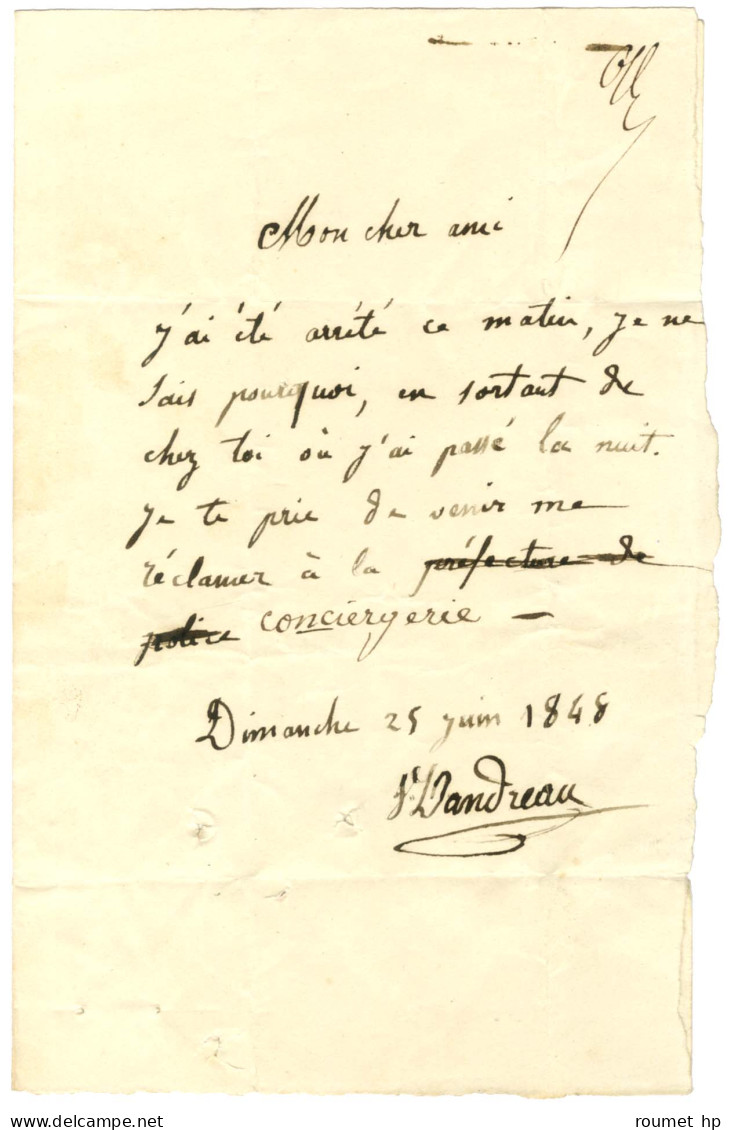 Mon cher ami
j'ai été arrêté ce matin, je ne
sais pourquoi, en sortant de
chez toi où j'ai passé la nuit.
Je te prie de venir me
réclamer à la préfecture de
police conciergerie —
Dimanche 25 juin 1848
Dandreau
delcampe.net
roumet hp